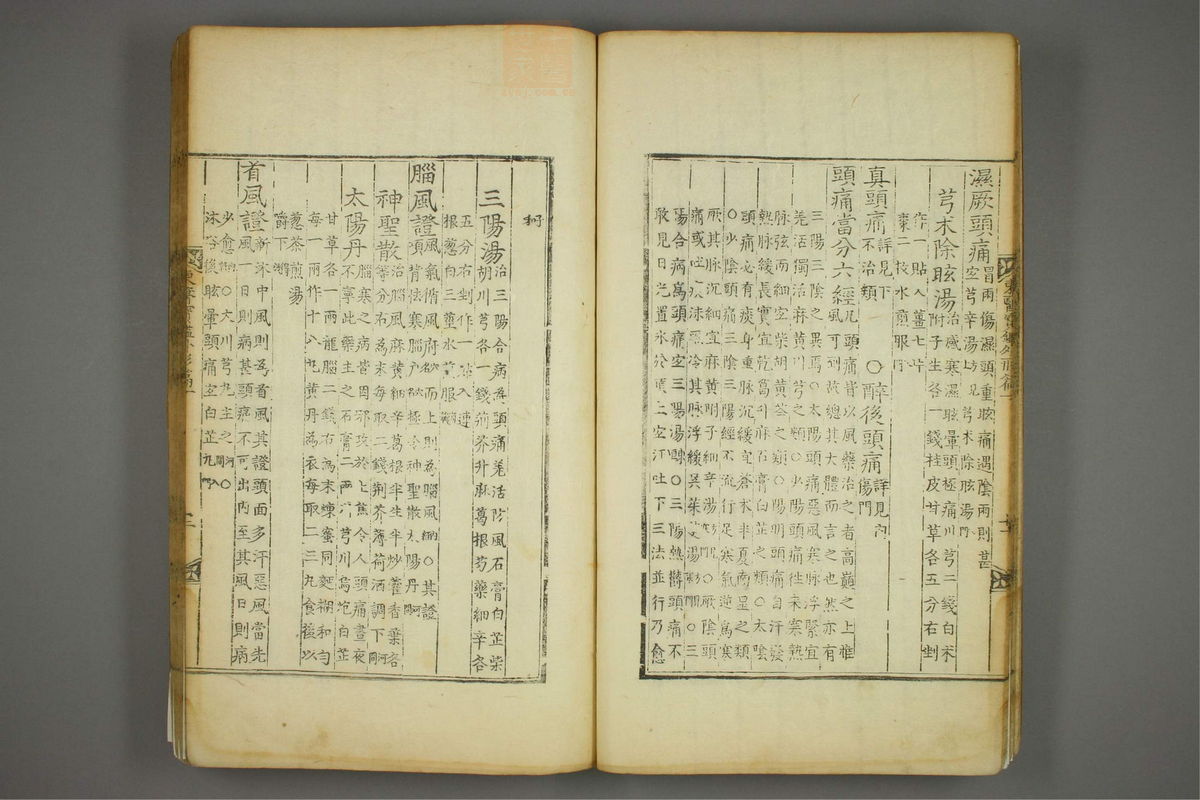 濕厥頭痛
冒雨傷濕頭重眩痛遇陰雨則甚
宜芎辛湯方見上芎朮除眩湯
芎朮除眩湯
治感寒濕眩暈頭極痛川芎二錢白朮
附子生各一錢桂皮甘草各五分右剉
作一貼入薑七片
棗二枚水煎服
真頭痛
詳見下
不治類
○醉後頭痛
詳見內
傷門
頭痛當分六經
凡頭痛皆以風藥治之者高巔之上惟
風可到故總其大體而言之也然亦有
三陽三陰之異焉○太陽頭痛惡風寒脉浮緊宜
羌活獨活麻黃川芎之類○少陽頭痛往來寒熱
脉弦而細宜柴胡黃芩之類○陽明頭痛自汗發
熱脉緩長實宜乾葛升麻石膏白芷之類○太陰
頭痛必有痰身重脉沉緩宜蒼朮半夏南星之類
○少陰頭痛三陰三陽經不流行足寒氣逆爲寒
厥其脉沉細宜麻黃附子細辛湯○厥陰頭
痛或吐痰沫厥冷其脉浮緩吳茱萸湯○三
陽合病爲頭痛宜三陽湯○三陽熱鬱頭痛不
敢見日光置氷於頂上宜汗吐下三法並行乃愈
三陽湯
治三陽合病爲頭痛羌活防風石膏白芷柴
胡川芎各一錢荊芥升麻葛根芍藥細辛各
五分右剉作一貼入連
根葱白三莖水煎服
腦風證
風氣循風府而上則爲腦風○其證
項背怯寒腦戶極冷神聖散太陽丹
神聖散
治腦風麻黃細辛葛根半生半炒藿香葉各
等分右爲末每取二錢荊芥薄荷酒調下
太陽丹
腦寒之病皆因邪攻於上焦令人頭痛晝夜
不寧此藥主之石膏二兩川芎川烏炮白芷
甘草各一兩龍腦二錢右爲末煉蜜同麪糊和勻
每一兩作十八丸黃丹爲衣每取二三丸食後以
葱茶煎湯
嚼下
首風證
新沐中風則爲首風其證頭面多汗惡風當先
風一日則病甚頭痛不可出內至其風日則病
少愈○大川芎丸主之○
沐浴後眩暈頭痛宜白芷丸